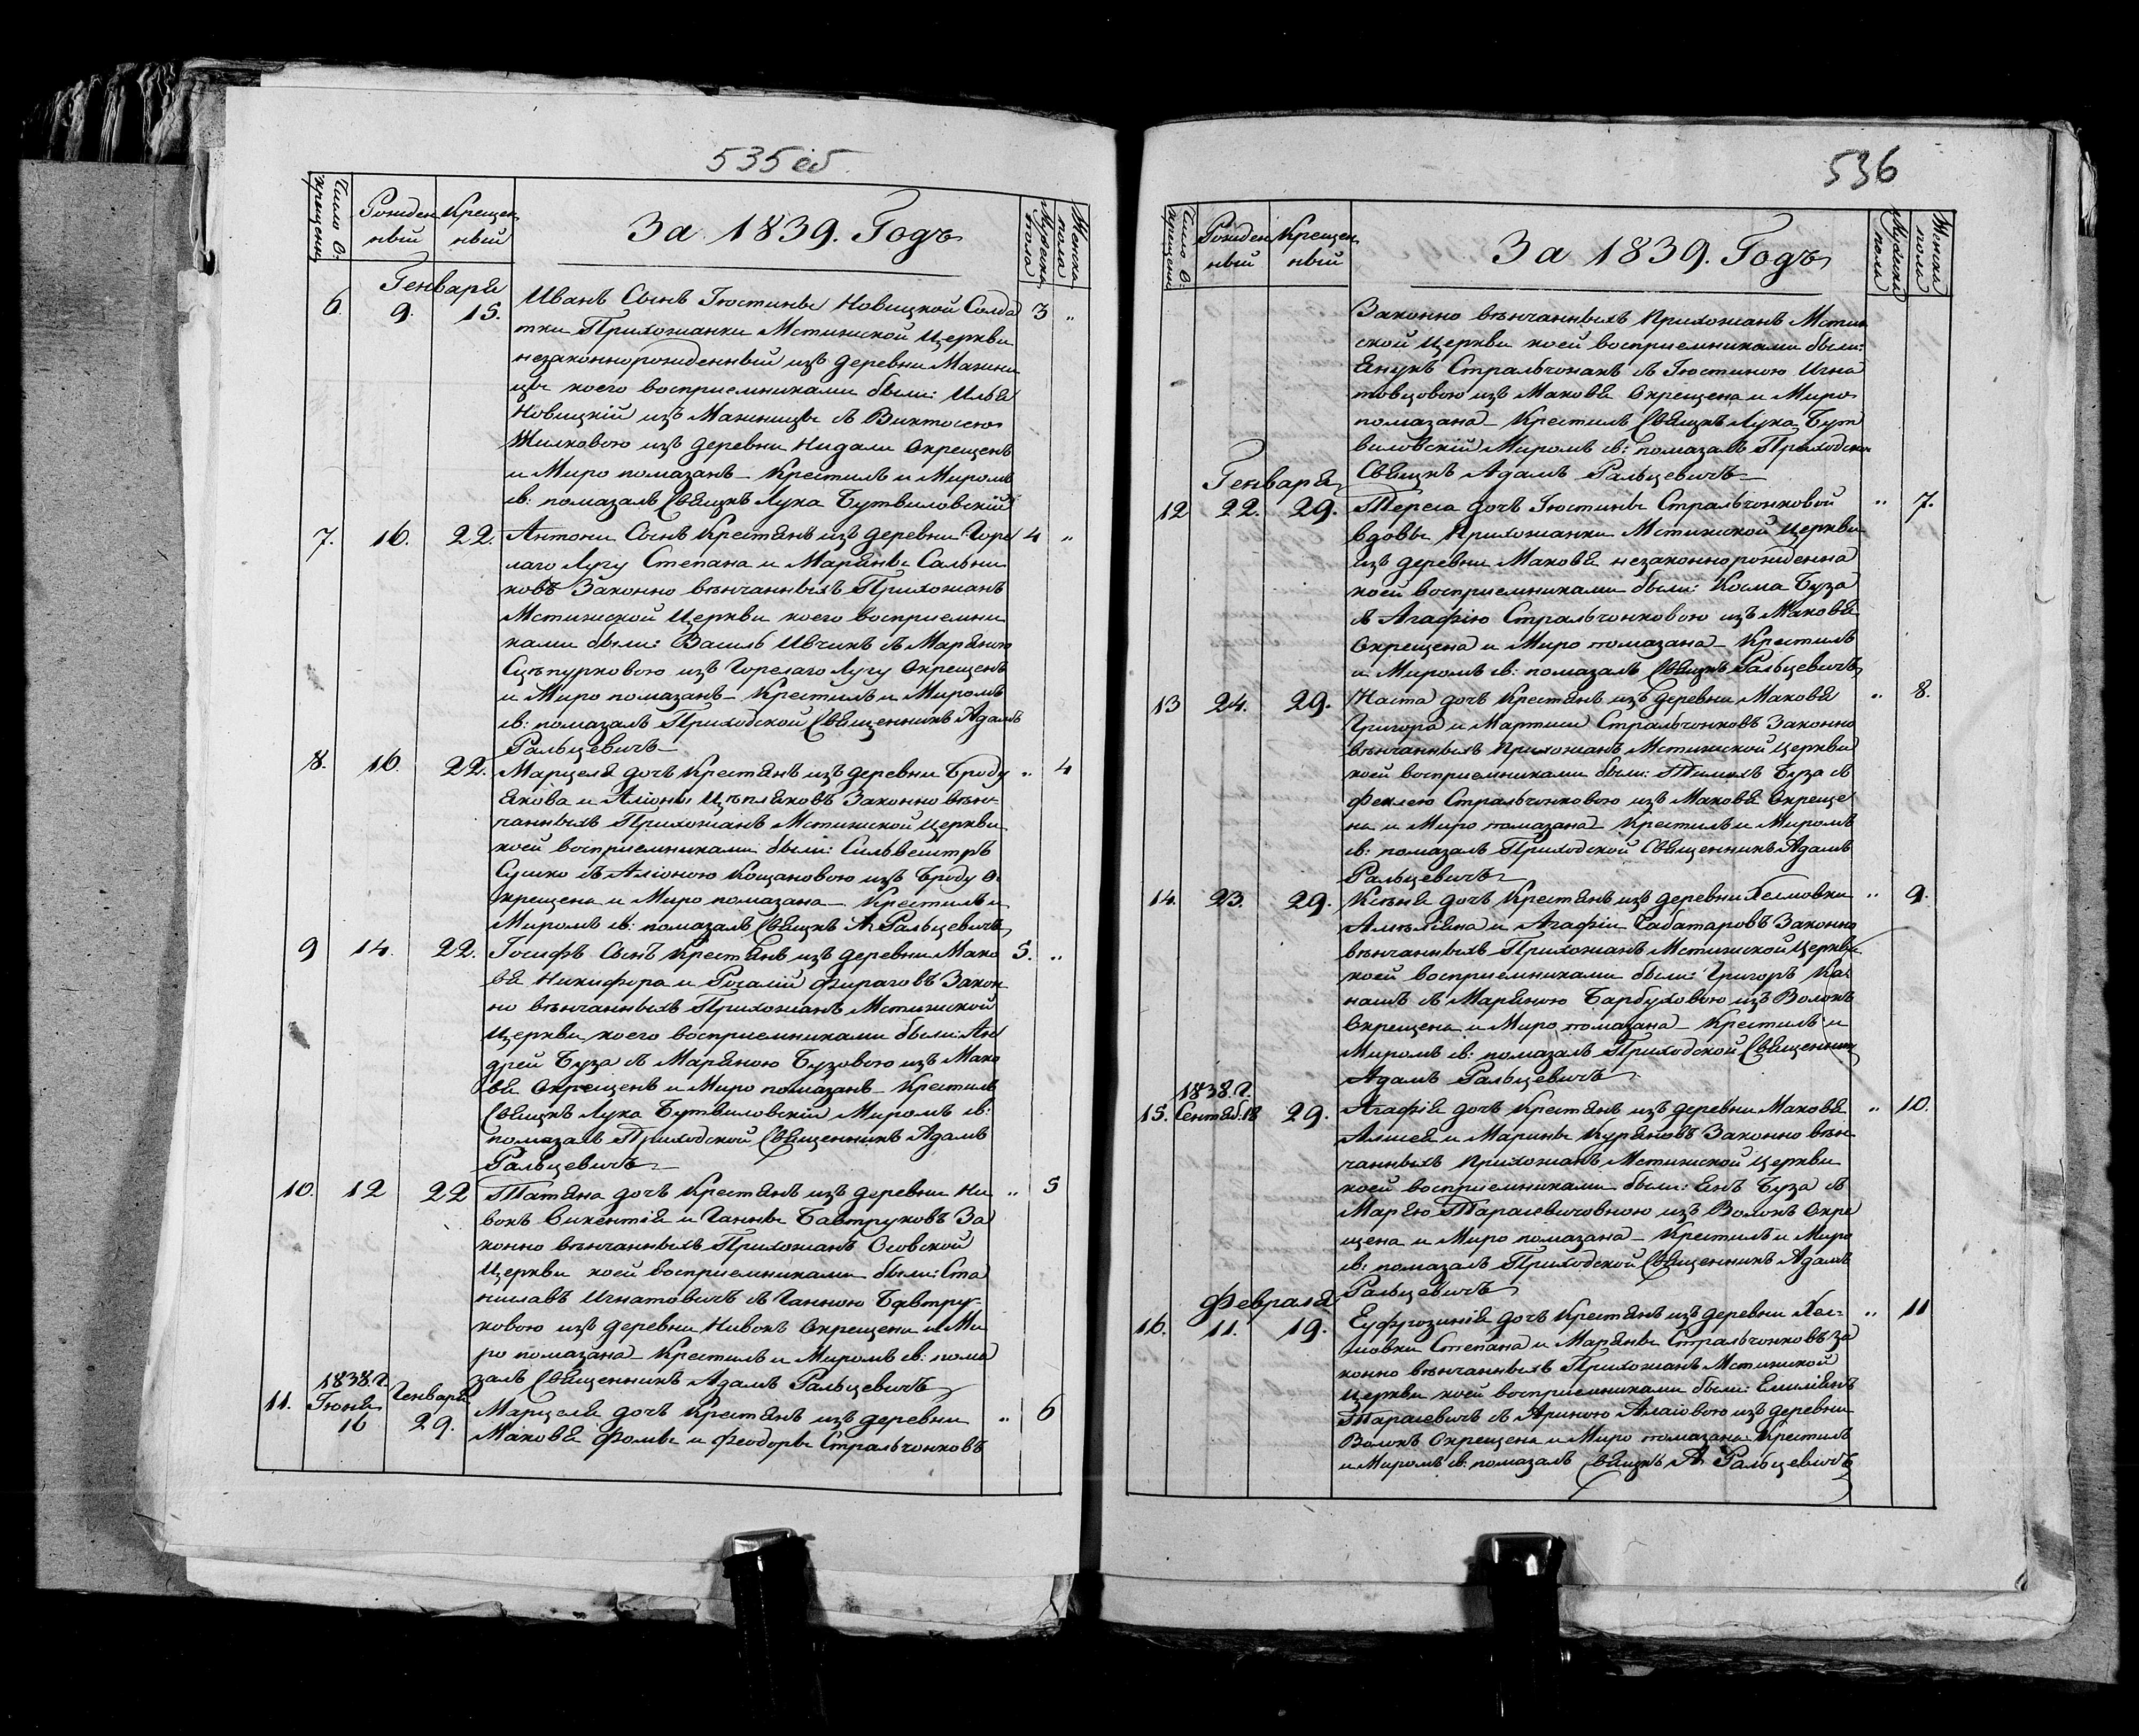 535 об
Число О:
крещени
Рожден
ный
Крещен
ный
За 1839. Годъ
Мужеска
пола
Женска
пола
Генваря
6. 9. 15. Иванъ Сынъ Іюстины Новицкой Солда 3 "
тки Прихожанки Мстижской Церкви
незаконнорожденный изъ деревни Махни
цы коего восприемниками были: Илья
Новицкій изъ Махницы съ Викто
Жилковою изъ деревни Нидали Окрещенъ
и Миро помазанъ – Крестилъ и Миромъ
св: помазалъ Свящкъ Лука Бутвиловскій
7. 16. 22. Антони Сынъ Крестянъ изъ деревни Горе 4 "
лаго Лугу Степана и Маряны Сальни
ковъ Законно вѣнчанныхъ Прихожанъ
Мстижской Церкви коего восприемни
ками были: Василь Ивчикъ съ Маряною
Сцѣпурковою изъ Горелаго Лугу Окрещенъ
и Миро помазанъ – Крестилъ и Миромъ
св: помазалъ Приходской Священникъ Адамъ
Ральцевичъ –
8. 16. 22. Марцеля дочь Крестянъ изъ деревни Броду " 4
Якова и Аліоны Цѣпляковъ Законно вѣн-
чанныхъ Прихожанъ Мстижской Церкви
коей восприемниками были: Сильвештръ
Сушко съ Аліоною Кощановою изъ Броду О-
крещена и Миро помазана – Крестилъ и
Миромъ св: помазалъ Свящкъ А: Ральцевичъ
9 14. 22. Іосифъ Сынъ Крестянъ изъ деревни Мако 5. "
вя Никифора и Розаліи Фираговъ Закон
но вѣнчанныхъ Прихожанъ Мстижской
Церкви коего восприемниками были: Ан
дрей Буза съ Маряною Бузовою изъ Мако
вя Окрещенъ и Миро помазанъ – Крестилъ
Свящкъ Лука Бутвиловскій Миромъ св:
помазалъ Приходской Священникъ Адамъ
Ральцевичъ –
10. 12 22 Татяна дочь Крестянъ изъ деревни Ни " 5
вокъ Викентія и Ганны Бавтруковъ За
конно вѣнчанныхъ Прихожанъ Осовской
Церкви коей восприемниками были: Ста
ниславъ Игнатовичъ съ Ганною Бавтру-
ковою изъ деревни Нивокъ Окрещена и Ми
ро помазана – Крестилъ и Миромъ св: пома
залъ Священникъ Адамъ Ральцевичъ
1838 г.
Іюня Генваря
11. 16 29. Марцеля дочь Крестянъ изъ деревни " 6
Маковя Фомы и Феодоры Стральчонковъ
536
Число О:
крещени
Рожден
ный
Крещен
ный
За 1839. Годъ
Мужеска
пола
Женска
пола
Законно вѣнчанныхъ Прихожанъ Мстиж
ской Церкви коей восприемниками были:
Янукъ Стральчонакъ съ Іюстиною Игна
товцовою изъ Маковя Окрещена и Миро
помазана – Крестилъ Свящкъ Лука Бут
виловскій Миромъ св: помазалъ Приходской
Свящкъ Адамъ Ральцевичъ –
Генваря
12 22. 29. Тереса дочь Іюстины Стральчонковой " 7.
вдовы Прихожанки Мстижской Церкви
изъ деревни Маковя незаконнорожденна
коей восприемниками были: Козма Буза
съ Агафіею Стральчонковою изъ Маковя
Окрещена и Миро помазана – Крестилъ
и Миромъ св: помазалъ Свящкъ Ральцевичъ
13 24. 29. Наста дочь Крестянъ изъ деревни Маковя " 8.
Григора и Мартыи Стральчонковъ Законно
вѣнчанныхъ Прихожанъ Мстижской Церкви
коей восприемниками были: Тимохъ Буза съ
Феклею Стральчонковою изъ Маковя Окреще
на и Миро помазана Крестилъ и Миромъ
св: помазалъ Приходской Священникъ Адамъ
Ральцевичъ
14. 23. 29. Ксѣня дочь Крестянъ изъ деревни Хелмовки " 9.
и Агафіи Сабатаровъ Законно
вѣнчанныхъ Прихожанъ Мстижской Церкви
коей восприемниками были: Григоръ Ка
нашъ съ Маряною Барбуховою изъ Волокъ
Окрещена и Миро помазана – Крестилъ и
Миромъ св: помазалъ Приходской Священникъ
Адамъ Ральцевичъ
1838. г.
15. Сентяб: 18 29. Агафія дочь Крестянъ изъ деревни Маковя " 10.
Алисея и Марины Куряновъ Законно вѣн
чанныхъ Прихожанъ Мстижской Церкви
коей восприемниками были: Янъ Буза съ
Марею Тарасевичовною изъ Волокъ Окре
щена и Миро помазана – Крестилъ и Миро
св: помазалъ Приходской Священникъ Адамъ
Ральцевичъ
Февраля
16. 11. 19. Еуфрозинія дочь Крестянъ изъ деревни Хел- " 11
мовки Степана и Маряны Стральчонковъ за
конно вѣнчанныхъ Прихожанъ Мстижской
Церкви коей восприемниками были: Емилянъ
Тарасевичъ съ Ариною Алаіовою изъ деревни
Волокъ Окрещена и Миро помазана Крестилъ
и Миромъ св: помазалъ Свящкъ А. Ральцевичъ